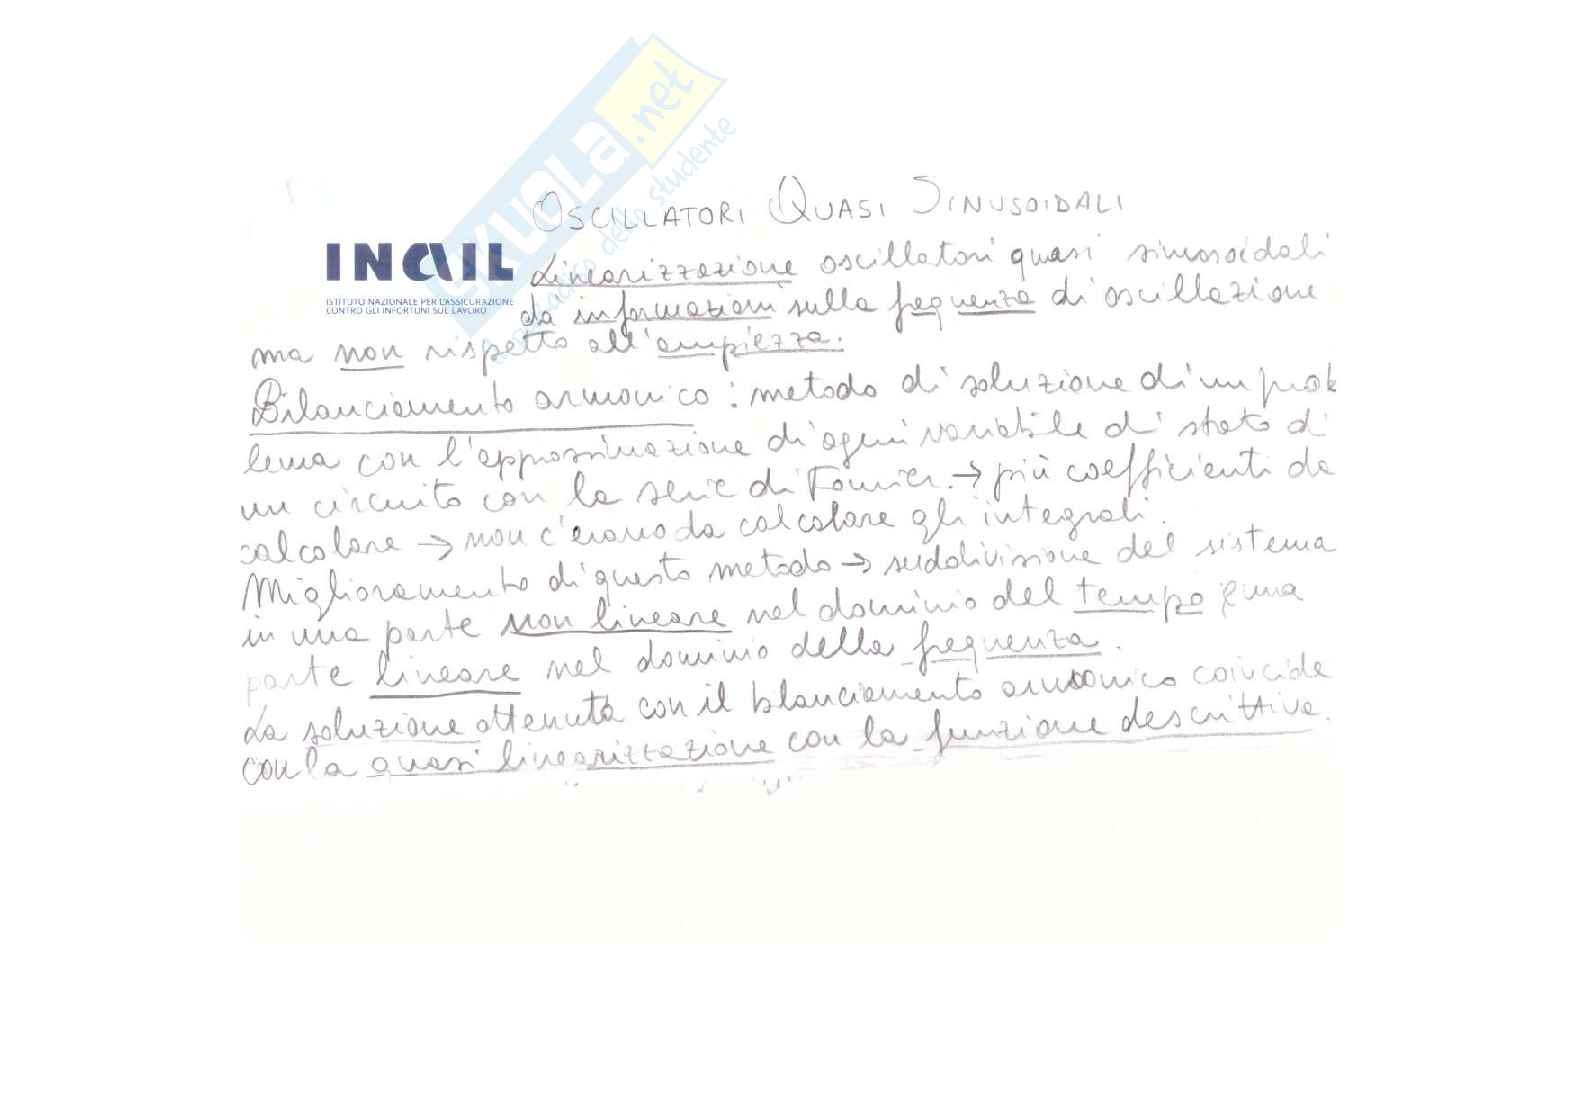 SKUOLA.net
della studente
OSCILLATORI QUASI SINUSOIDALI
INAIL
ISTITUTO NAZIONALE PER L'ASSICURAZIONE
CONTRO GLI INFORTUNI SUL LAVORO
Linearizzazione oscillatori quasi sinusoidali
da informazioni sulla frequenza di oscillazione
ma non rispetto all'ampiezza.
Bilanciamento armonico: metodo di soluzione di un prob
lema con l'approssimazione di ogni variabile di stato di
un circuito con la serie di Fourier. → più coefficienti da
calcolare → non c'erano da calcolare gli integrali.
Miglioramento di questo metodo → suddivisione del sistema
in una parte non lineare nel dominio del tempo e una
parte lineare nel dominio della frequenza.
La soluzione ottenuta con il blanciamento armonico coincide
con la quasi linearizzazione con la funzione descrittiva.